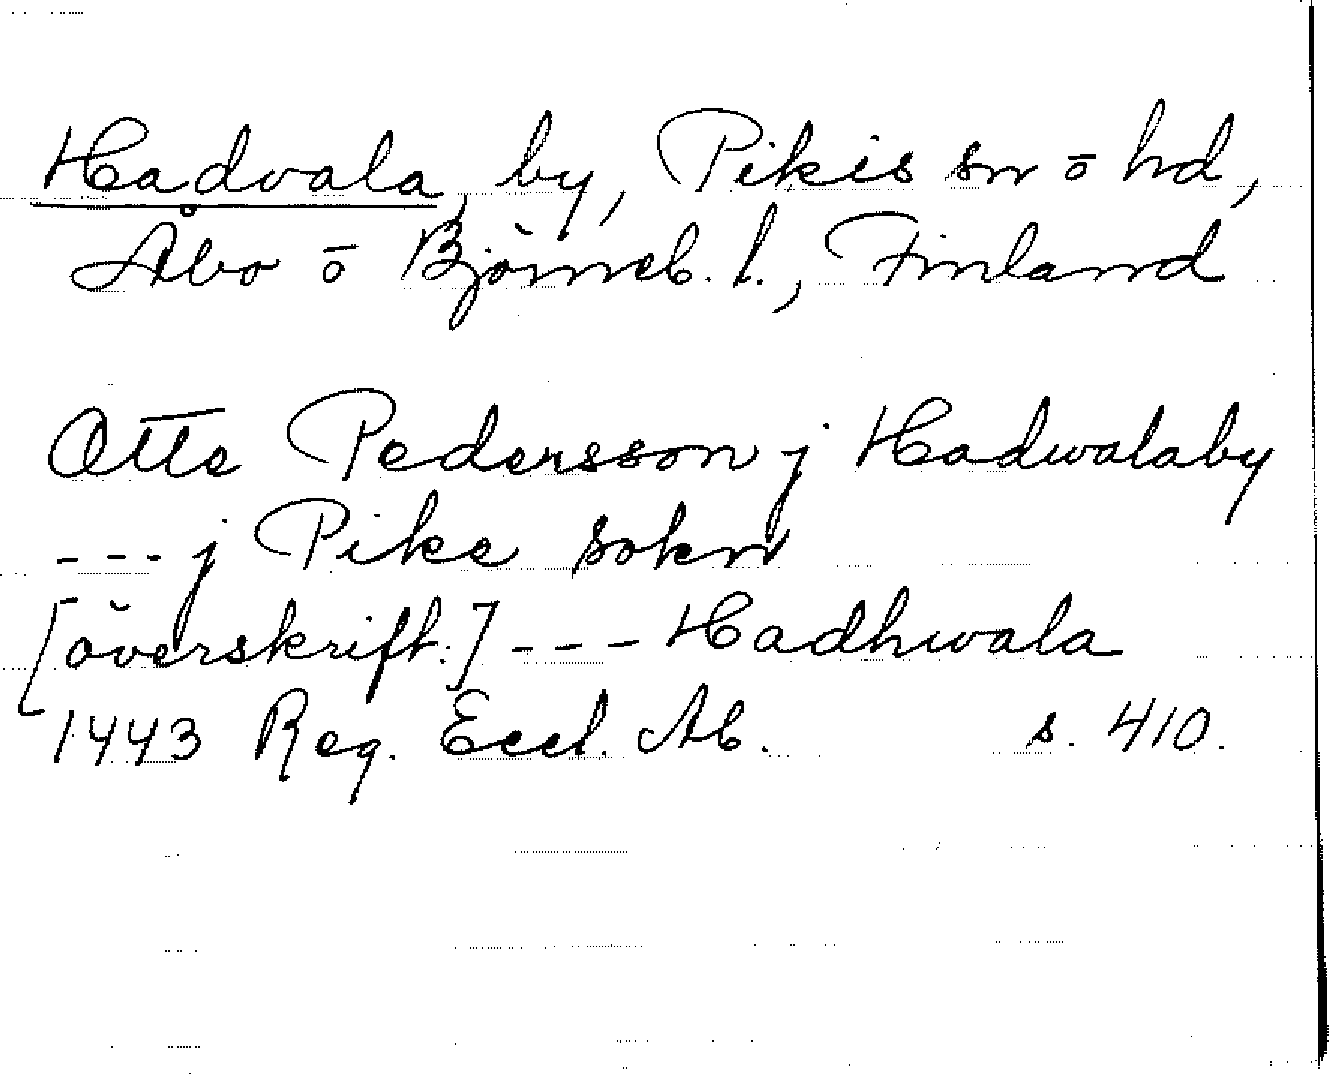 Hadvala by, Pikis sn o hd,
Åbo o Björneb. l., Finland
Otte Pedersson j Hadwalaby
--- j Pike sokn
[överskift.] --- Hadhwala
1443 Reg. Eccl. Ab. s. 410.